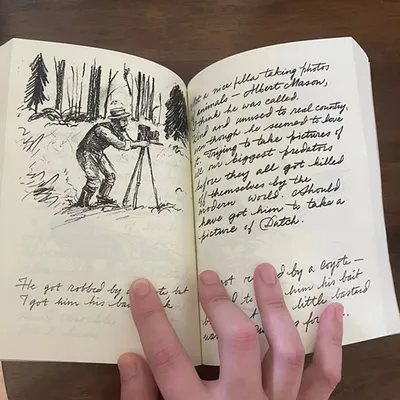 He got robbed by a coyote but
I got him his ba k
t a nice fella taking photos
animals – Albert Mason,
think he was called.
ind and unused to real country,
en though he seemed to love
t. Trying to take pictures of
ll our biggest predators
before they all got killed
of themselves by the
modern world. Should
have got him to take a
picture of Dutch.
got ro d by a coyote –
d to him his bait
little bastard
s fo